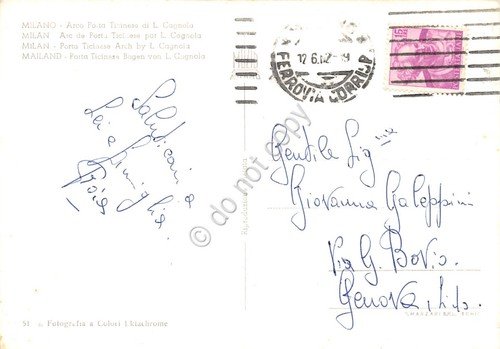 MILANO - Arco Porta Ticinese di L. Cagnola
MILAN - Arc de Porta Ticinese par L. Cagnola
MILAN - Porta Ticinese Arch by L. Cagnola
MAILAND - Porta Ticinese Bogen von L. Cagnola
12.6.62
FERROVIA CORRISP
Saluti cari a
Lei e famiglia.
Gentile Sig.na
Giovanna Galeppini
Via G. Bovio.
Genova
do not copy
51
Fotografia a Colori Ektachrome